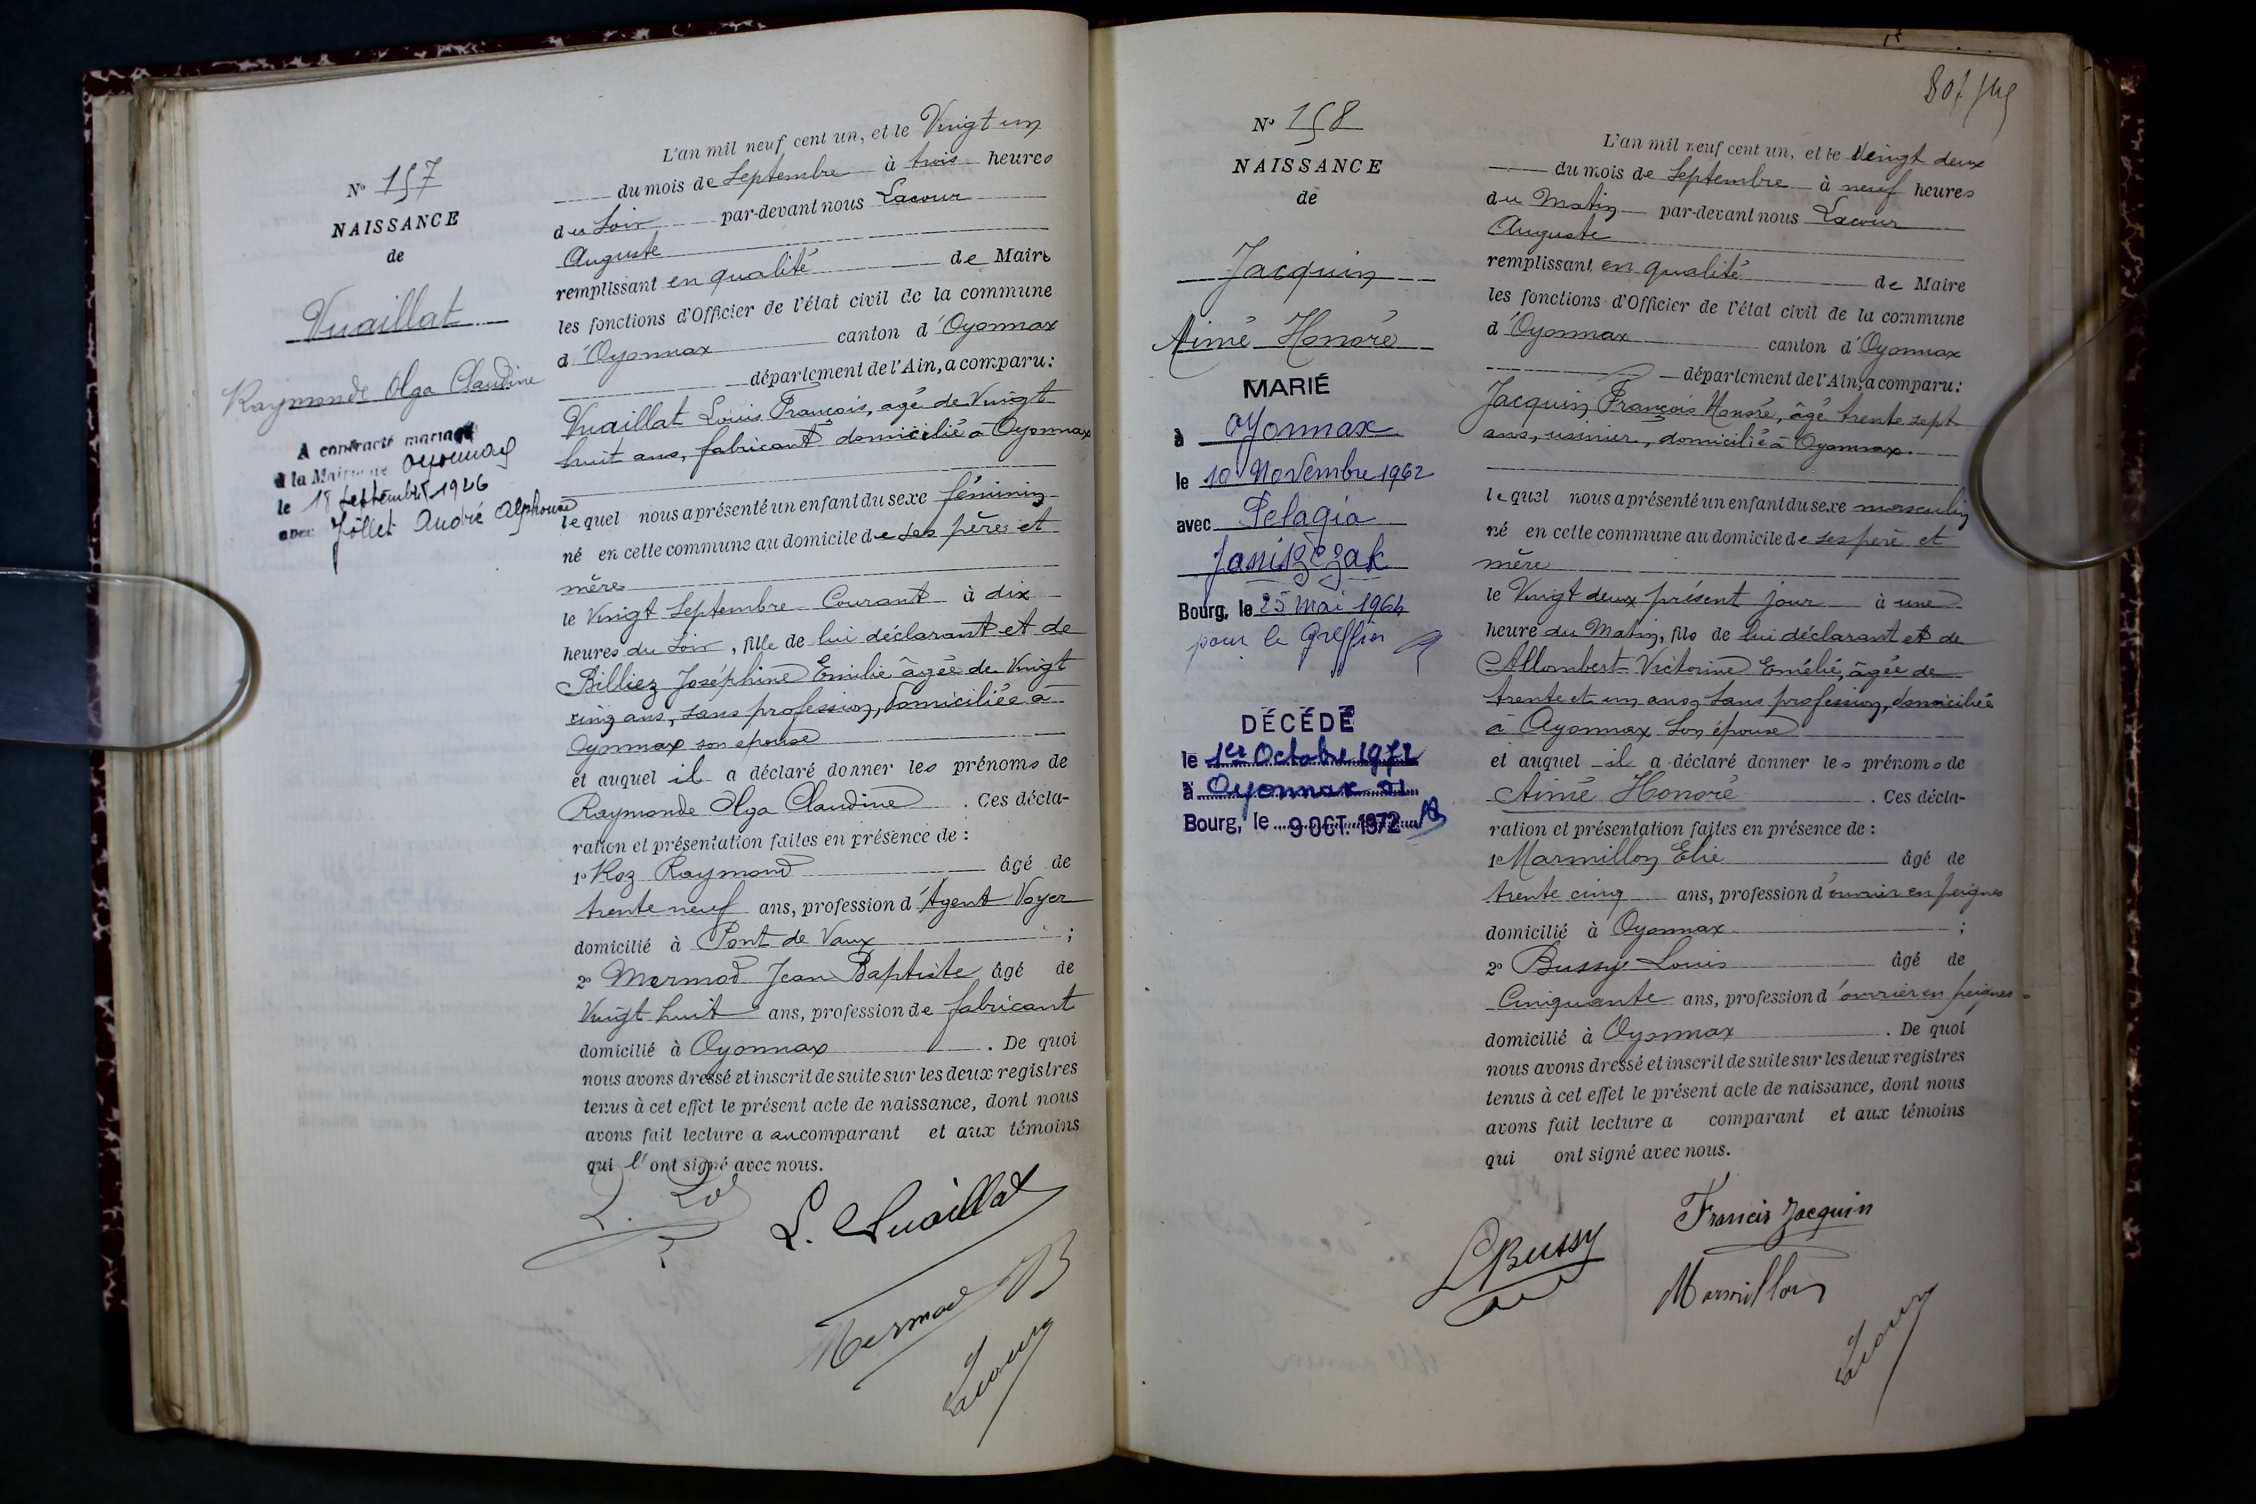 N° 157
NAISSANCE
de
Vuaillat
Raymonde Olga Claudine
A contracté mariage
à la Mairie de Oyonnax
le 18 Septembre 1926
avec Jollet André Alphonse
L'an mil neuf cent un, et le Vingt un
du mois de Septembre à trois heures
du Soir par-devant nous Lacour
Auguste
remplissant en qualité de Maire
les fonctions d'Officier de l'état civil de la commune
d'Oyonnax canton d'Oyonnax
département de l'Ain, a comparu:
Vuaillat Louis François, agé de Vingt
huit ans, fabricant domicilié à Oyonnax
lequel nous a présenté un enfant du sexe féminin
né en cette commune au domicile de ses père et
mère
le Vingt Septembre Courant à dix
heures du Soir, fille de lui déclarant et de
Billiez Joséphine Emilie âgée de Vingt
cinq ans, sans profession, domiciliée à
Oyonnax son épouse
et auquel il a déclaré donner les prénoms de
Raymonde Olga Claudine. Ces décla-
ration et présentation faites en présence de :
1° Roz Raymond âgé de
trente neuf ans, profession d'Agent Voyer
domicilié à Pont de Vaux ;
2° Mermod Jean Baptiste âgé de
Vingt huit ans, profession de fabricant
domicilié à Oyonnax. De quoi
nous avons dressé et inscrit de suite sur les deux registres
tenus à cet effet le présent acte de naissance, dont nous
avons fait lecture a au comparant et aux témoins
qui l'ont signé avec nous.
L. Vuaillat
Mermod JB
Lacour
80/
N° 158
NAISSANCE
de
Jacquin
Aimé Honoré
MARIÉ
à Oyonnax
le 10 Novembre 1962
avec Pelagia
Janiszczak
Bourg, le 25 Mai 1964
pour le Greffier
DÉCÉDÉ
le 1er Octobre 1972
à Oyonnax 01
Bourg, le 9 OCT. 1972
L'an mil neuf cent un, et le Vingt deux
du mois de Septembre à neuf heures
du Matin par-devant nous Lacour
Auguste
remplissant en qualité de Maire
les fonctions d'Officier de l'état civil de la commune
d'Oyonnax canton d'Oyonnax
département de l'Ain, a comparu:
Jacquin François Honoré, âgé trente sept
ans, usinier, domicilié à Oyonnax.
lequel nous a présenté un enfant du sexe masculin
né en cette commune au domicile de ses père et
mère
le Vingt deux présent jour à une
heure du Matin, fils de lui déclarant et de
Allombert Victorine Emélie, âgée de
trente et un ans, sans profession, domiciliée
à Oyonnax Son épouse
et auquel il a déclaré donner les prénoms de
Aimé Honoré. Ces décla-
ration et présentation faites en présence de :
1° Marmillon Elie âgé de
trente cinq ans, profession d'ouvrier en peignes
domicilié à Oyonnax ;
2° Bussy Louis âgé de
Cinquante ans, profession d'ouvrier en peignes
domicilié à Oyonnax. De quoi
nous avons dressé et inscrit de suite sur les deux registres
tenus à cet effet le présent acte de naissance, dont nous
avons fait lecture a comparant et aux témoins
qui ont signé avec nous.
Francis Jacquin
L Bussy
Marmillon
Lacour